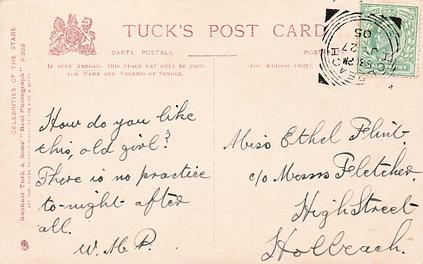 TUCK'S POST CARD
CARTE POSTALE
IF SENT ABROAD, THIS SPACE MAY ONLY BE USED
FOR NAME AND ADDRESS OF SENDER.
(For Address Only.)
CELEBRITIES OF THE STAGE
Raphael Tuck & Sons' "Real Photograph"
How do you like
this, old girl?
There is no practice
to-night after
all.
W. M. P.
Miss Ethel Flint.
c/o Messrs Fletcher
High Street
Holbeach.
HOLBEACH
27
05